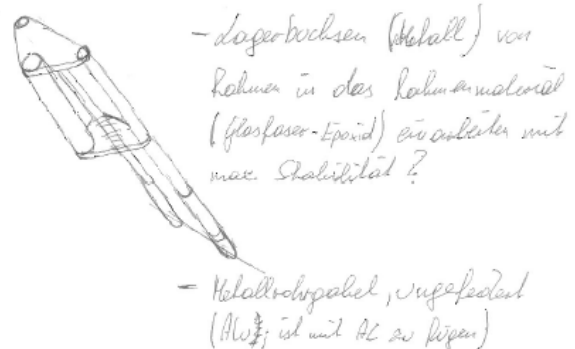 - Lagerbuchsen (Metall) von
Rahmen in das Rahmenmaterial
(Glasfaser-Epoxid) einarbeiten mit
max. Stabilität?
- Metallrohrgabel, ungefedert
(Alu, ist mit AL zu fügen)